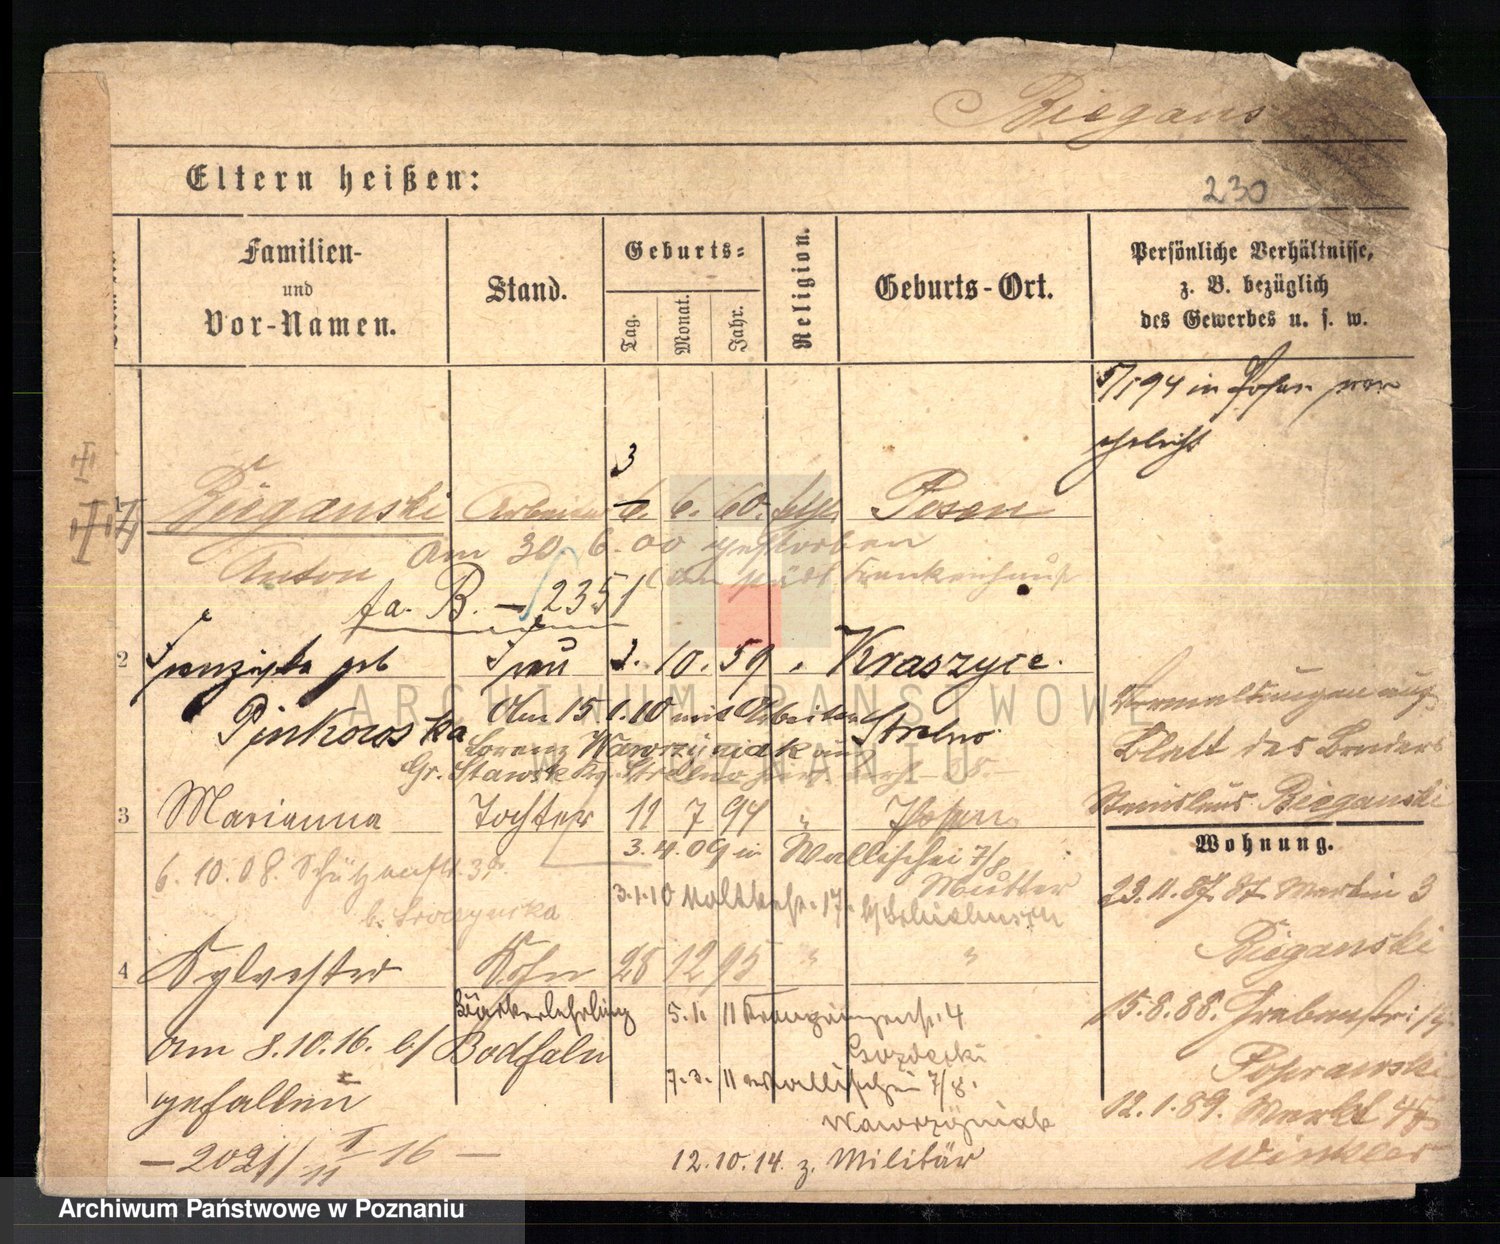 Biegans
Eltern heißen:
230
Familien-
und
Vor-Namen.
Stand.
Geburts-
Tag.
Monat.
Jahr.
Religion.
Geburts-Ort.
Persönliche Verhältnisse,
z. B. bezüglich
des Gewerbes u. s. w.
5/1 94 in Posen ver
ehelicht
3
1 Bieganski Arbeiter 6. 6. 60. kath. Posen
Anton am 30 6. 00 gestorben
im städt Krankenhause
fa. B. – 2351
2 Franziska geb Frau 3. 10. 59 „ Kraszyce.
Pinkowska Am 15 1. 10 mit Arbeiter Strelno
Lorenz Wawrzyniak aus
Gr. Stawsk Kr. Strelno
3 Marianna Tochter 11 7 94 „ Posen
3. 4. 09 in Wallischei 7/8
6. 10. 08. Schützenstr. 3
Mutter
3. 1. 10 Moltkestr. 17.
4 Sylvester Sohn 28 12 95 „ „
Bäckerlehrling 5. 1. 11 4
am 8. 10. 16. b/ Bodfalu
7. 3. 11 Wallischei 7/8.
gefallen
Wawrzyniak
– 2021/ 16 –
12. 10. 14. z. Militär
Vermaltungen auf
Blatt des Bruders
Stanislaus Bieganski
Wohnung.
23. 11. 87. St. Martin 3
Bieganski
15. 8. 88. Grabenstr.
Poprawski
12. 1. 89. Markt 45
Winkler
ARCHIWUM PAŃSTWOWE
W POZNANIU
Archiwum Państwowe w Poznaniu